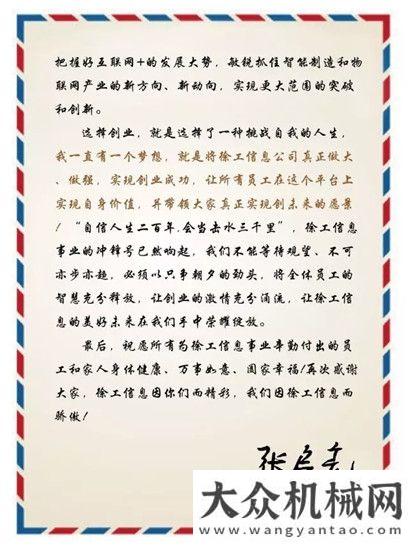 把握好互联网+的发展大势，敏锐抓住智能制造和物
联网产业的新方向、新动向，实现更大范围的突破
和创新。
选择创业，就是选择了一种挑战自我的人生，
我一直有一个梦想，就是将徐工信息公司真正做大
、做强，实现创业成功，让所有员工在这个平台上
实现自身价值，并带领大家真正实现创未来的愿景
！“自信人生二百年，会当击水三千里”，徐工信息
事业的冲锋号已然响起，我们不能等待观望、不可
亦步亦趋，必须以只争朝夕的劲头，将全体员工的
智慧充分释放，让创业的激情充分涌流，让徐工信
息的美好未来在我们手中荣耀绽放。
最后，祝愿所有为徐工信息事业辛勤付出的员
工和家人身体健康、万事如意、阖家幸福！再次感谢
大家，徐工信息因你们而精彩，我们因徐工信息而
骄傲！
张启亮
大众机械网
www.wangyantao.com